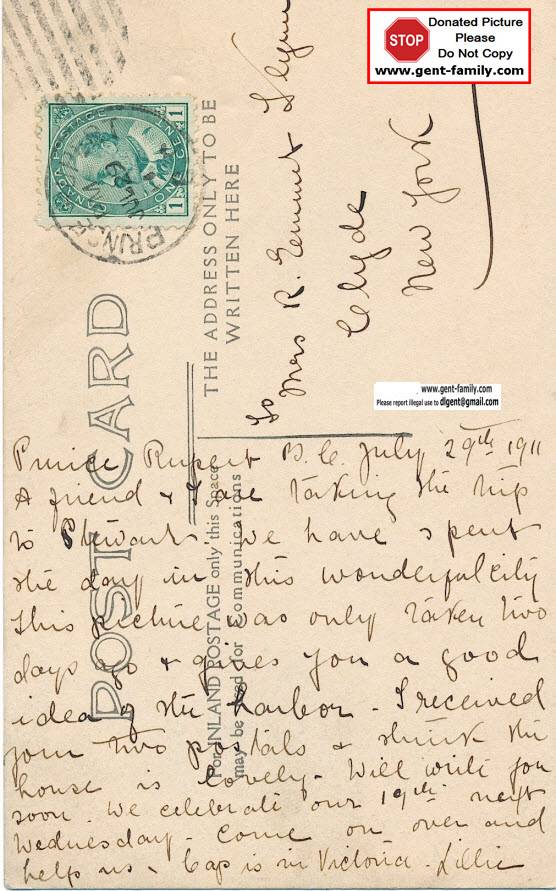 STOP
Donated Picture
Please
Do Not Copy
www.gent-family.com
CANADA POSTAGE
ONE CENT
1 1
PRINCE RUPERT
JUL 29
POST CARD
THE ADDRESS ONLY TO BE
WRITTEN HERE
For INLAND POSTAGE only this Space
may be used for Communications
To
Mrs R. Emmet
Clyde
New York
www.gent-family.com
Please report illegal use to dlgent@gmail.com
Prince Rupert B.C. July 29th 1911
A friend & I are taking the trip
to Stewart. We have spent
the day in this wonderful city
This picture was only taken two
days ago & gives you a good
idea of the harbor - I received
your two postals & think the
house is lovely - Will write you
soon. We celebrate our 19th next
Wednesday - Come on over and
help us - Cap is in Victoria - Lillie